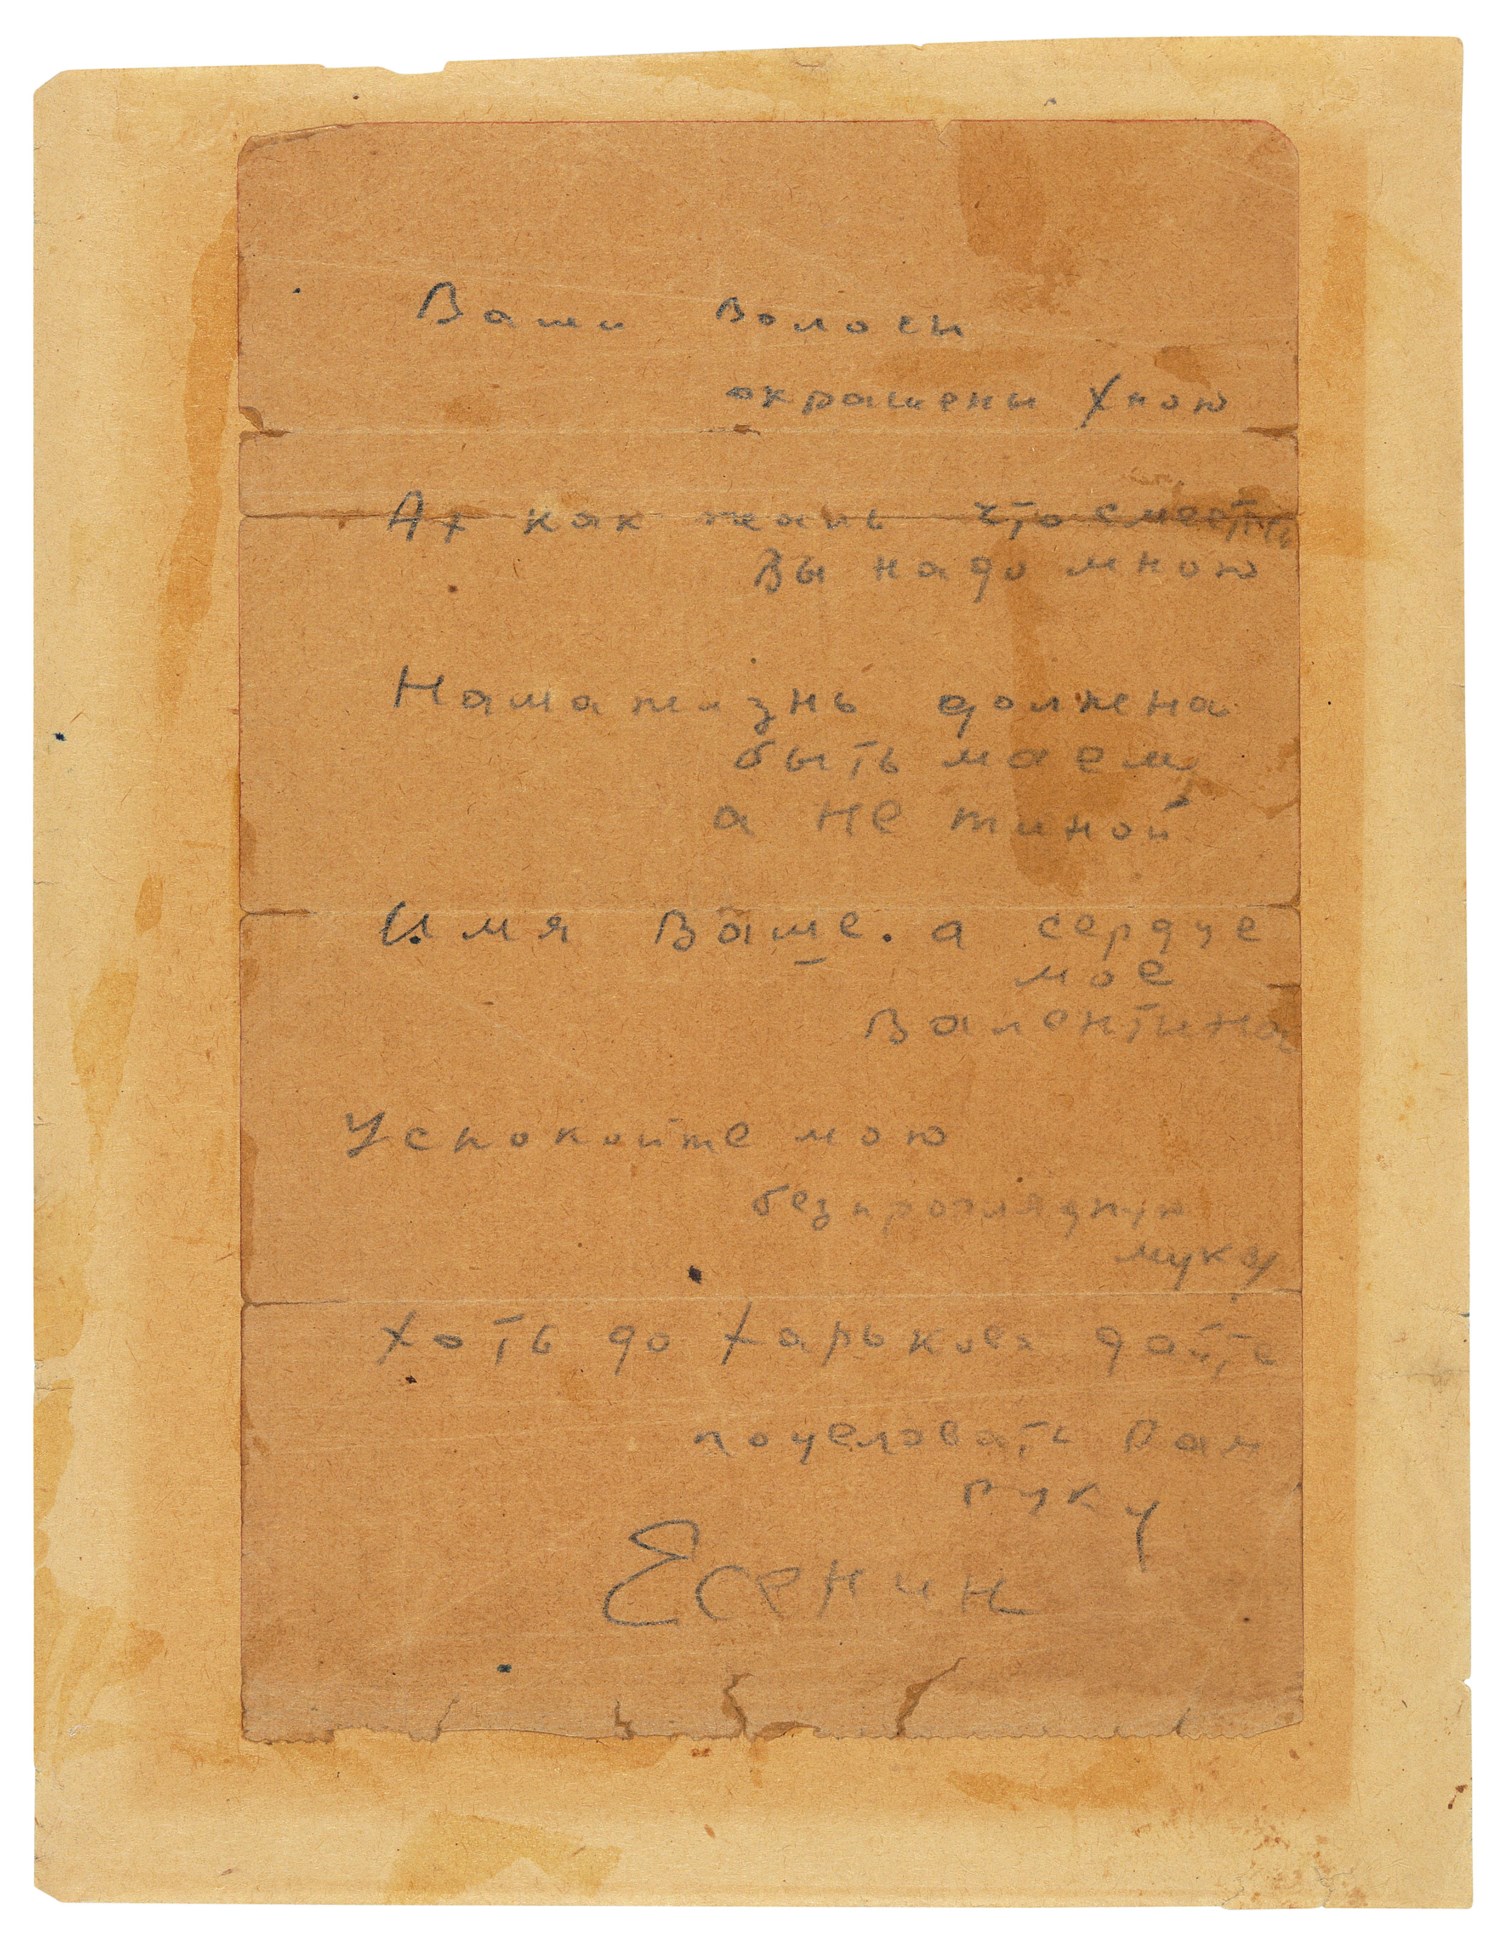 Ваши волосы
окрашены хною
Ах как жаль что смеетесь
Вы надо мною
Наша жизнь должна
быть маем
а не тиной
Имя Ваше. а сердце
мое
Валентина
Успокойте мою
безпроглядную
муку
Хоть до Харькова дайте
поцеловать Вам
руку
Есенин